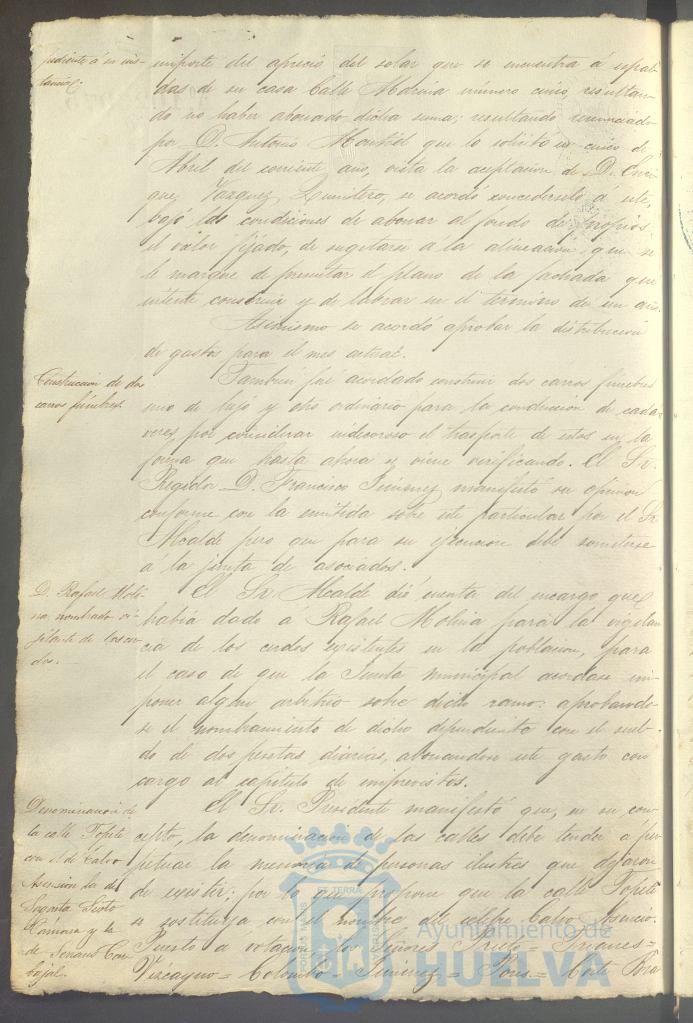 pediente á su ins-
tancia.
importe del aprecio del solar que se encuentra á espal-
das de su casa Calle Marina número cinco, resultan-
do no haber abonado dicha suma; resultando renunciado
por D. Antonio que lo solicitó en cinco de
Abril del corriente año, vista la aceptacion de D. Enri-
que Vazquez se acordó concederselo á este,
bajo las condiciones de abonar al fondo de propios
el valor fijado, de sugetarse a la alineacion que se
le marque de presentar el plano de la fachada que
intente construir y de labrar en el termino de un año.
Asimismo se acordó aprobar la distribucion
de gastos para el mes actual.
Construccion de dos
carros fúnebres
Tambien fué acordado construir dos carros fúnebres
uno de lujo y otro ordinario para la conduccion de cada-
veres, por considerar indecoroso el trasporte de estos en la
forma que hasta ahora se viene verificando. El Sr.
Regidor D. Francisco Jimenez manifestó su opinion
conforme con la emitida sobre este particular por el Sr
Alcalde pero que para su ejecucion debe someterse
á la junta de asociados.
D. Rafael Moli-
na, nombrado vi-
gilante de los cer-
dos.-
El Sr. Alcalde dió cuenta del encargo que
habia dado á Rafael Molina para la vigilan
cia de los cerdos existentes en la poblacion, para
el caso de que la Junta municipal acordase im-
poner algun arbitrio sobre dicho ramo: aprobando-
se el nombramiento de dicho dependiente con el suel-
do de dos pesetas diarias, abonandose este gasto con
cargo al capitulo de imprevistos.
Denominacion de
la calle Topete
con el de Calvo
Asensio la de
Sagasta
Cámara y la
de Serrano Car
bajal.
El Sr. Presidente manifestó que, en su con-
cepto, la denominacion de las calles debe tender á per-
petuar la memoria de personas ilustres que dejaron
de existir; por lo que propone que la calle Topete
se sostituya con el nombre del celebre Calvo Asencio.
Puesto a votacion los Señores Prieto =
Vizcayno = Colombo = Jimenez = = Corte Bra
Ayuntamiento de
HUELVA